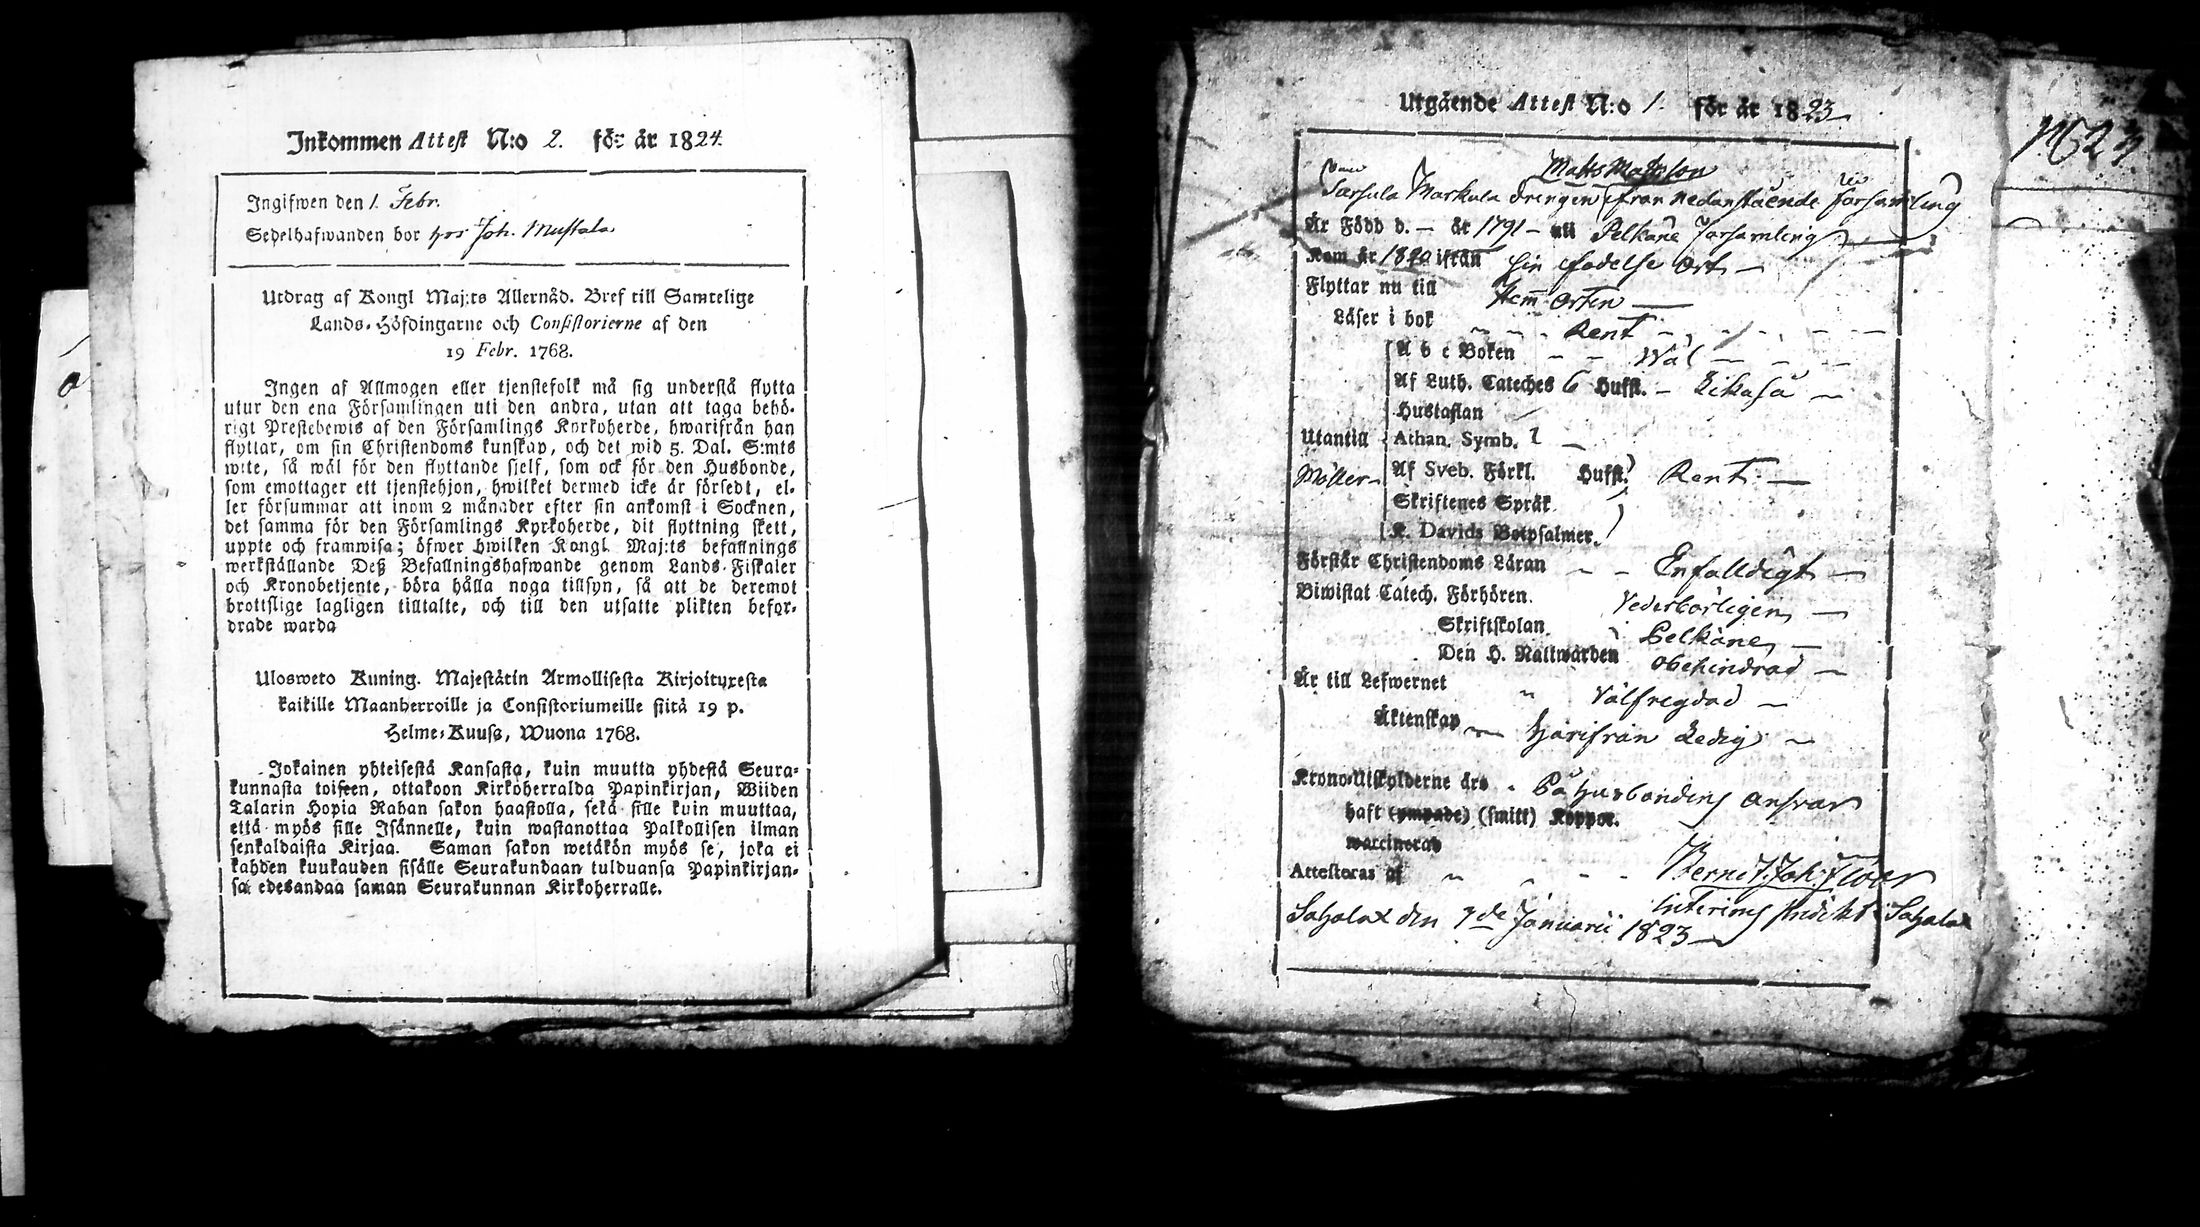 Inkommen Attest N:o 2. för år 1824.
Ingifwen den 1. Febr.
Sedelhafwanden bor hos Joh. Mustala
Utdrag af Kongl Maj:ts Allernåd. Bref till Samtelige
Lands-Höfdingarne och Consistorierne af den
19 Febr. 1768.
Ingen af Allmogen eller tjenstefolk må sig understå flytta
utur den ena Församlingen uti den andra, utan att taga behö-
rigt Prestebewis af den Församlings Kyrkoherde, hwarifrån han
flyttar, om sin Christendoms kunskap, och det wid 5. Dal. S:mts
wite, så wäl för den flyttande sjelf, som ock för den Husbonde,
som emottager ett tjenstehjon, hwilket dermed icke är försedt, el-
ler försummar att inom 2 månader efter sin ankomst i Socknen,
det samma för den Församlings Kyrkoherde, dit flyttning skett,
uppte och framwisa; öfwer hwilken Kongl. Maj:ts befallnings
werkställande Deß Befallningshafwande genom Lands-Fiskaler
och Kronobetjente, böra hålla noga tillsyn, så att de deremot
brottslige lagligen tilltalte, och till den utsatte plikten befor-
drade warda
Ulosweto Kuning. Majestätin Armollisesta Kirjoituxesta
kaikille Maanherroille ja Consistoriumeille siitä 19 p.
Helme-Kuusa, Wuona 1768.
Jokainen yhteisestä Kansasta, kuin muutta yhdestä Seura-
kunnasta toiseen, ottakoon Kirkoherralda Papinkirjan, Wiiden
Talarin Hopia Rahan sakon haastolla, sekä sille kuin muuttaa,
että myös sille Isännelle, kuin wastanottaa Palkollisen ilman
senkaldaista Kirjaa. Saman sakon wetäkön myös se, joka ei
kahden kuukauden sisälle Seurakundaan tulduansa Papinkirjan-
sa edesandaa saman Seurakunnan Kirkoherralle.
Utgående Attest N:o 1. för år 1823
Matts Mattsson
Sarsula Markula Drengen ifrån Nedanstående församling
Är Född d. — år 1791 — uti Pelkäne Församling
Kom år 1820 ifrån Sin födelse Ort —
Flyttar nu till Hem Orten —
Läser i bok Rent
A b c Boken Wäl
Af Luth. Cateches 6 Hufst. — Likaså —
Hustaflan
Utantill Athan. Symb.
Möller Af Sveb. Förkl. Hufst. Rent —
Skriftenes Språk
K. Davids Botpsalmer.
Förstår Christendoms Läran — Enfalldigt —
Biwistat Catech. Förhören. Vederbörligen —
Skriftskolan. Pelkäne —
Den H. Nattwarden Obehindrad —
Är till Lefwernet Välfregdad —
Äktenskap Härifrån Ledig —
Krono-Utskylderne äro På Husbondens ansvar
haft (ympade) (smitt) Koppor.
waccinerad
Attesteras af Bernd. Joh:
Sahalax den 7de Januarii 1823